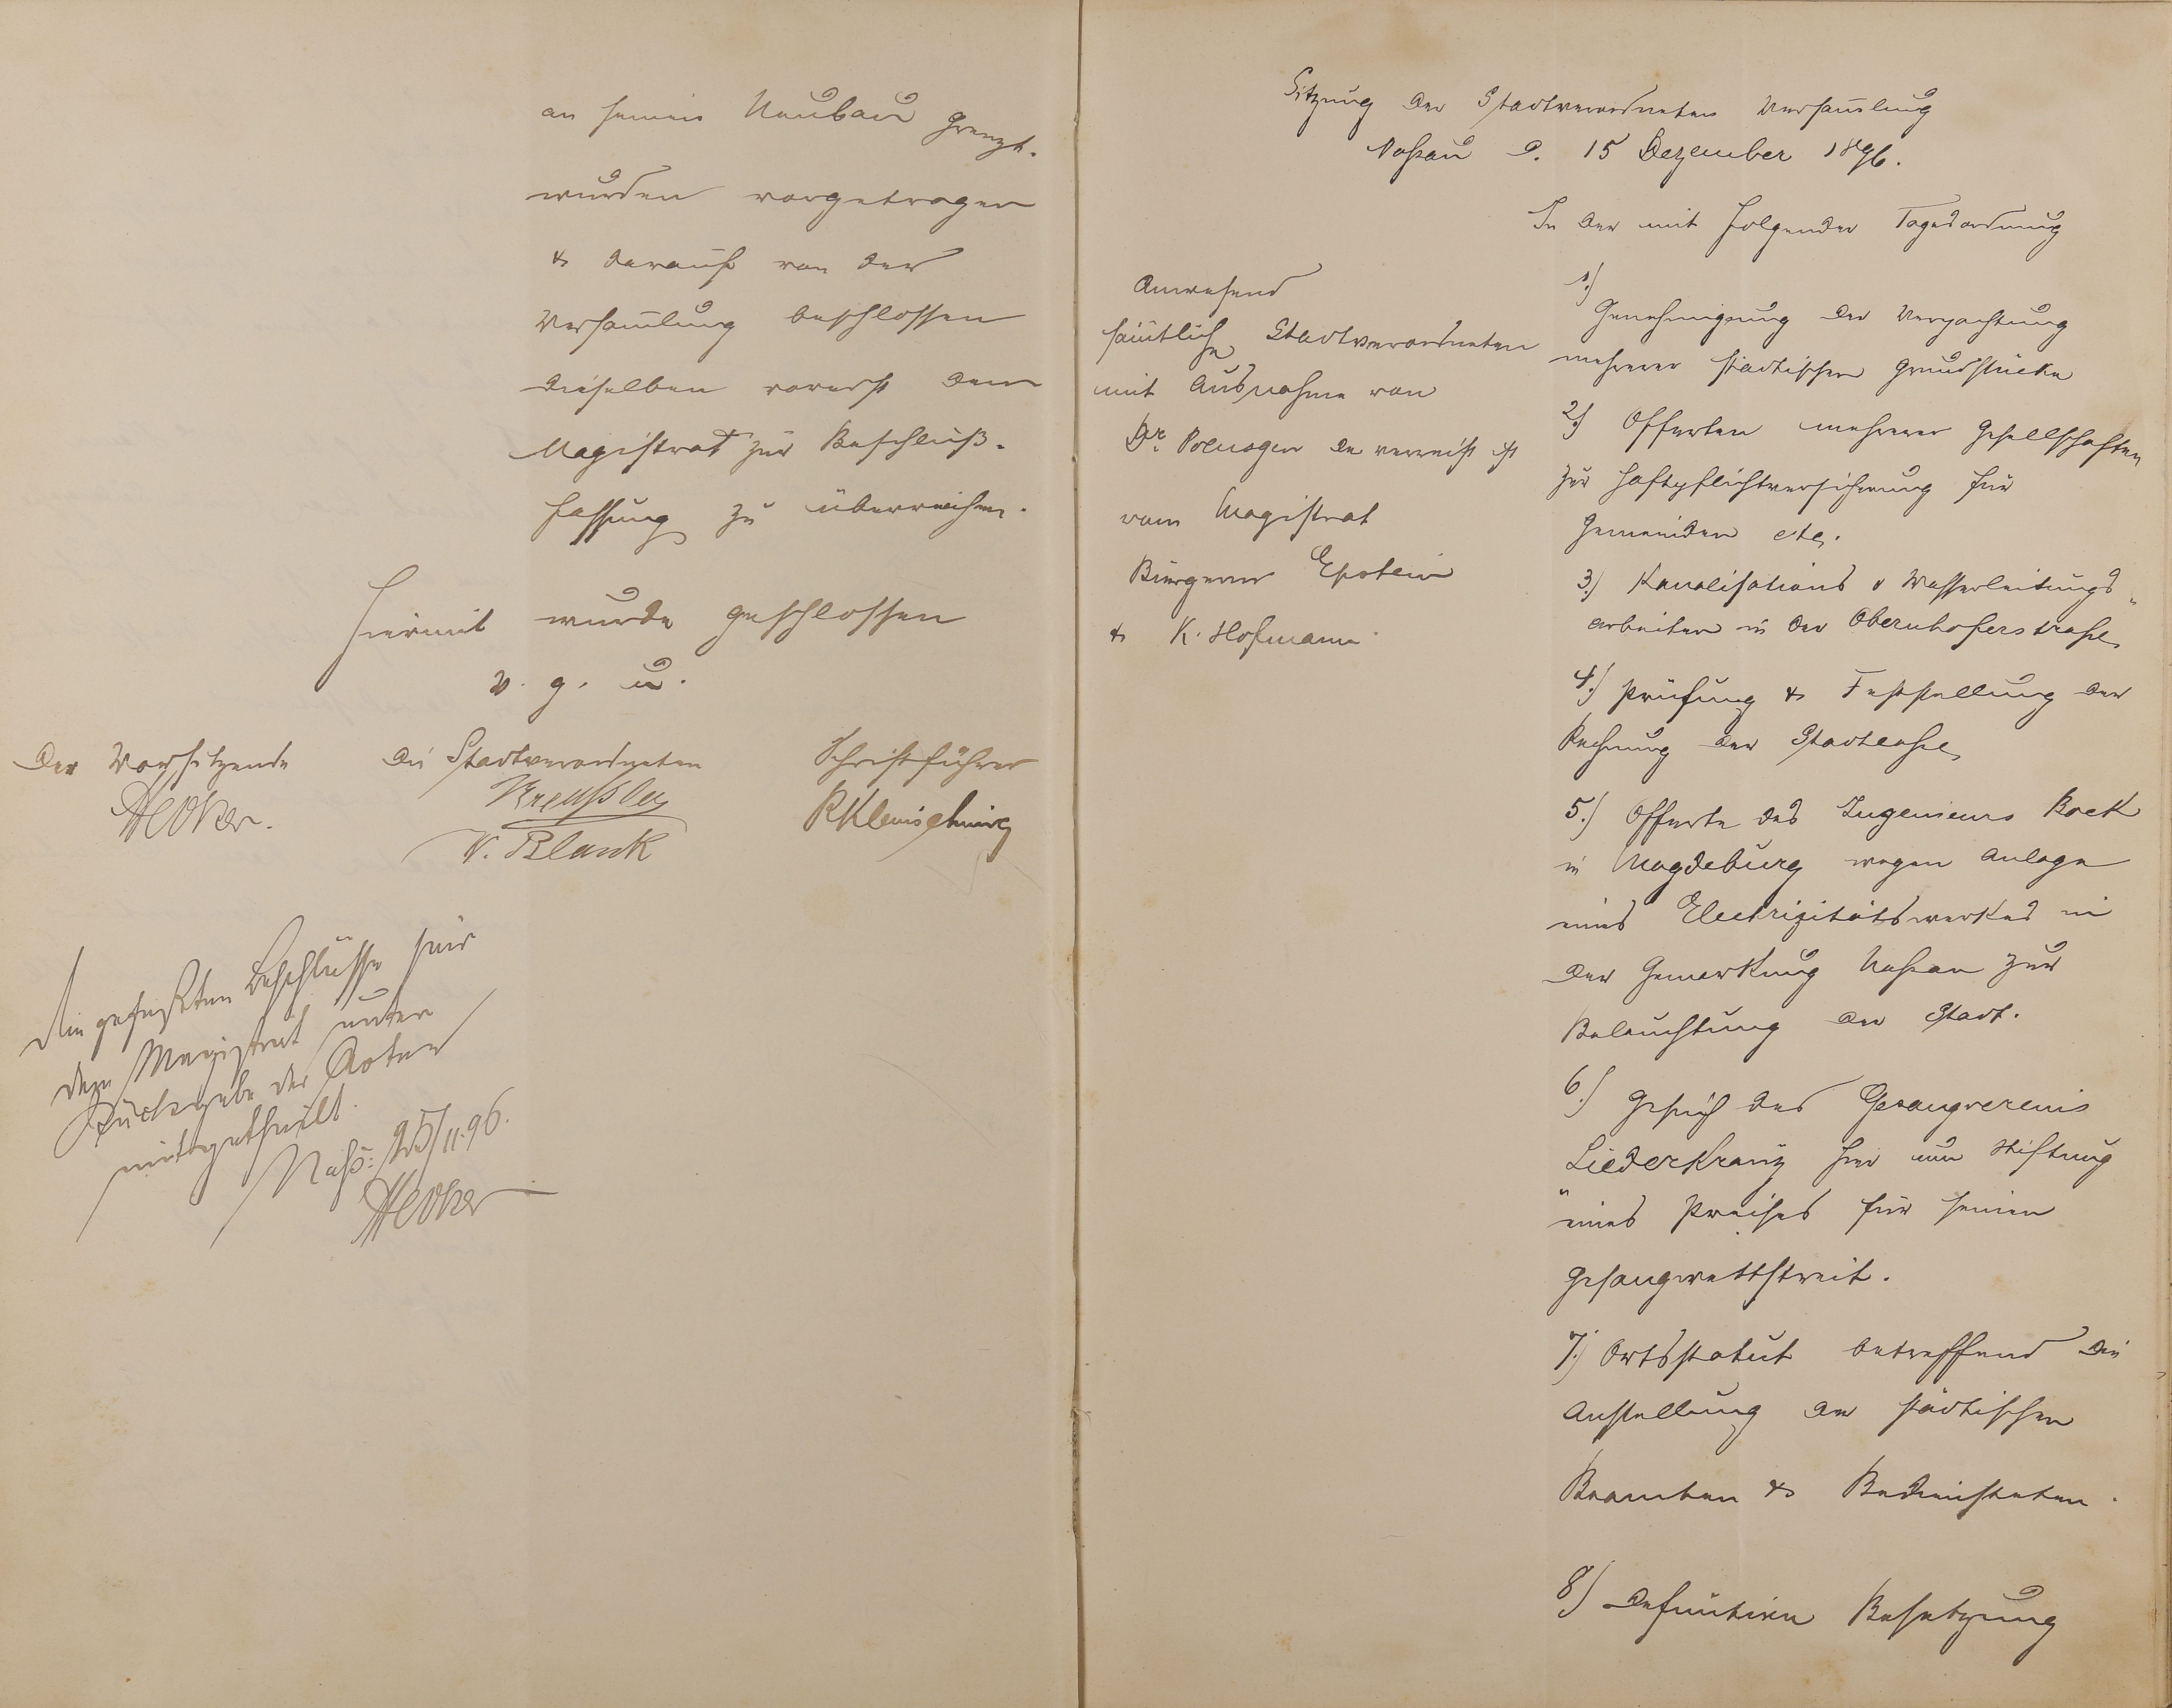 an seinen Neubau grenzt.
wurden vorgetragen
& darauf von der
Versam̄lung beschlossen
dieselben vorerst dem
Magistrat zur Beschluß-
fassung zu überreichen.
Hiermit wurde geschlossen
v. g. u.
Der Vorsitzende
Die Stadtverordneten
Schriftführer
V. Blank
Die gefaßten Beschlüsse hier
dem Magistrat unter
Rückgabe der Acten
mitgetheilt.
Nass: 25/11.96.
Sitzung der Stadtverordneten Versam̄lung
Nassau d. 15 Dezember 1896.
In der mit folgender Tagesordnung
Anwesend
säm̄tliche Stadtverordneten
mit Ausnahme von
Dr. der verreist ist
vom Magistrat
Bürgerm Epstein
& K. Hofmann
1.)
Genehmigung der Verpachtung
mehrerer städtischen Grundstücke
2.) Offerten mehrerer Gesellschaften
zur Haftpflichtversicherung für
Gemeinden etc.
3.) Kanalisations & Wasserleitungs-
arbeiten in der Obernhoferstraße
4.) Prüfung & Feststellung der
Rechnung der Stadtcasse
5.) Offerte des Ingenieurs Bock
in Magdeburg wegen Anlage
eines Electrizitätswerkes in
der Gemarkung Nassau zur
Beleuchtung der Stadt.
6.) Gesuch des Gesangvereins
Liederkranz hier um Stiftung
eines Preises für seinen
Gesangwettstreit.
7.) Ortsstatut betreffend die
Anstellung der städtischen
Beamten & Bediensteten.
8.) Definitive Besetzung